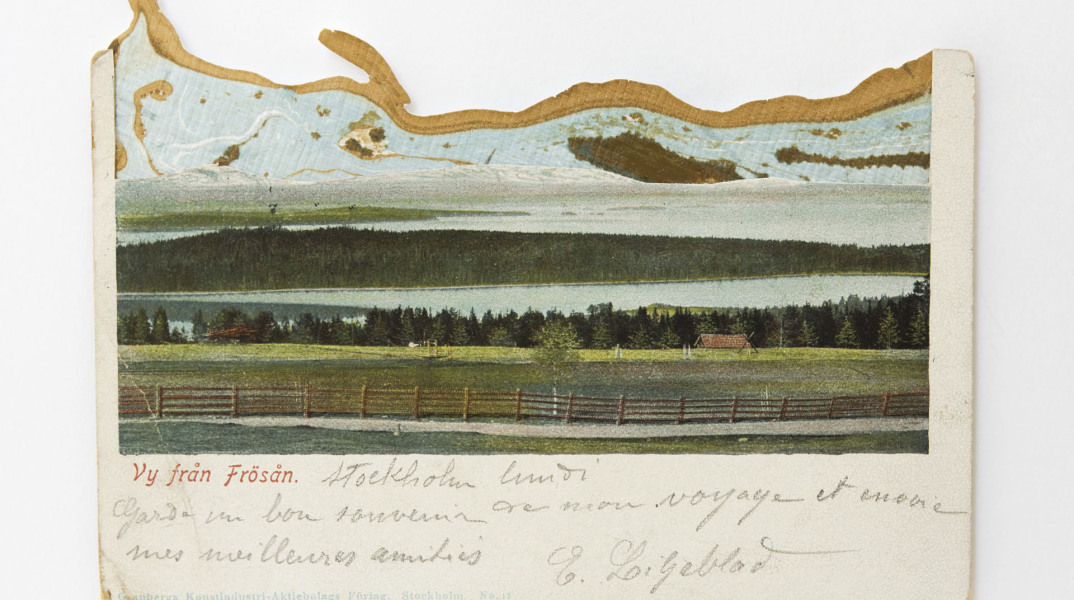 Vy från Frösån. Stockholm lundi
Garde un bon souvenir de mon voyage et envoie
mes meilleures amitiés E. Liljeblad
Granbergs Konstindustri-Aktiebolags Förlag. Stockholm. No. 11